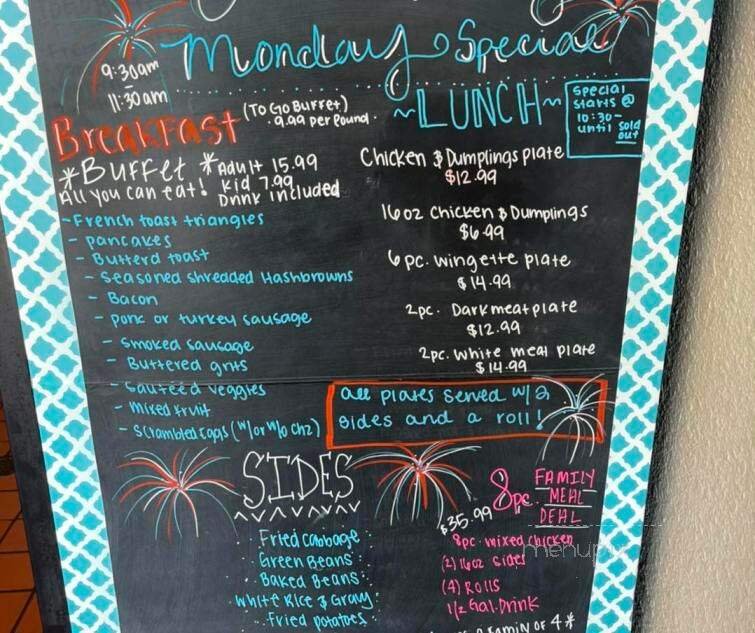 Monday Special
9:30am
-
11:30am
Breakfast
(To Go Buffet)
9.99 per pound.
*Buffet *Adult 15.99
All you can eat! Kid 7.99
Drink included
- French toast triangles
- pancakes
- Butterd toast
- Seasoned shredded Hashbrowns
- Bacon
- pork or turkey sausage
- smoked sausage
- Buttered grits
- sautéed veggies
- mixed fruit
- Scrambled Eggs (w/or w/o chz)
~LUNCH~
special
starts @
10:30-
until sold
out
Chicken & Dumplings plate
$12.99
16oz Chicken & Dumplings
$6.99
6pc. wingette plate
$14.99
2pc. Dark meat plate
$12.99
2pc. White meal plate
$14.99
all plates served w/ 2
sides and a roll!
SIDES
Fried Cabbage
Green Beans
Baked Beans
White Rice & Gravy
Fried potatoes
8pc. FAMILY
MEAL
DEAL
$35.99
8pc. mixed chicken
(2) 16oz sides
(4) Rolls
1/2 Gal. Drink
OF 4*
menupix